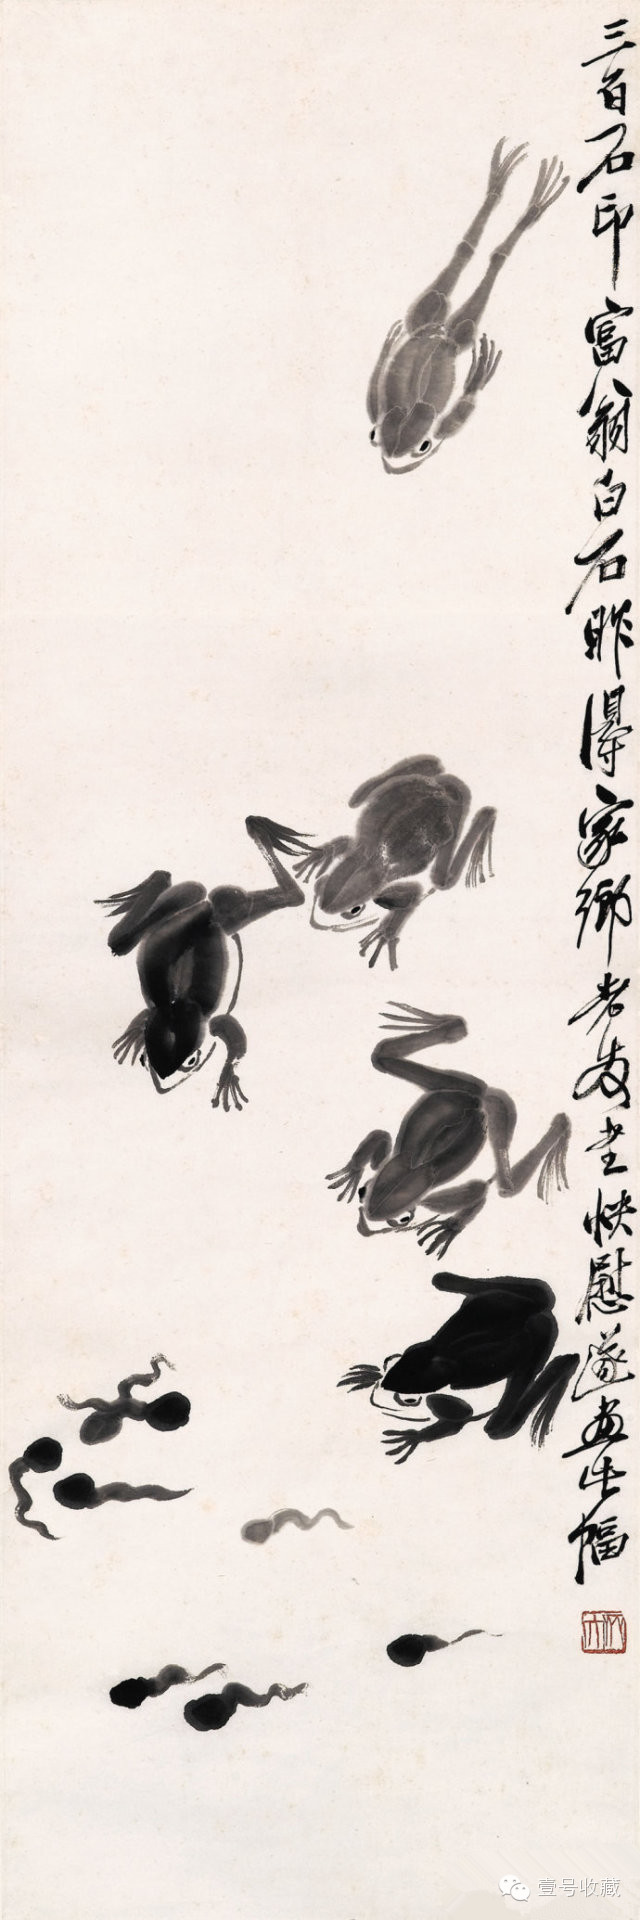 三百石印富翁白石昨得家乡老友书快慰遂画此幅
壹号收藏